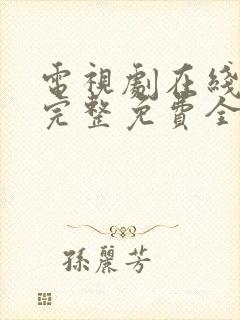 電視劇在綫
完整免費全
孫麗芳